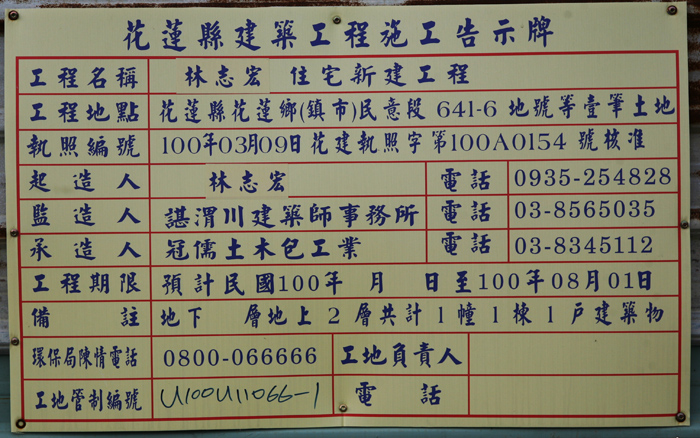 花蓮縣建築工程施工告示牌
工程名稱 林志宏 住宅新建工程
工程地點 花蓮縣花蓮鄉(鎮市)民意段 641-6 地號等壹筆土地
執照編號 100年03月09日花建執照字第100A0154 號核准
起造人 林志宏 電話 0935-254828
監造人 諶渭川建築師事務所 電話 03-8565035
承造人 冠儒土木包工業 電話 03-8345112
工程期限 預計民國100年 月 日至100年08月01日
備註 地下 層地上 2 層共計 1 幢 1 棟 1 戶建築物
環保局陳情電話 0800-066666 工地負責人
工地管制編號 U100U11066-1 電話